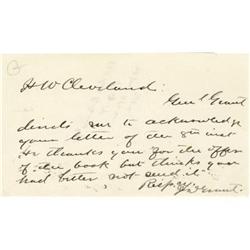 H W Cleveland.
Gen'l Grant
directs me to acknowledge
your letter of the 8th inst
He thanks you for the offer
of the book but thinks you
had better not send it.
Resp'y
Grant.